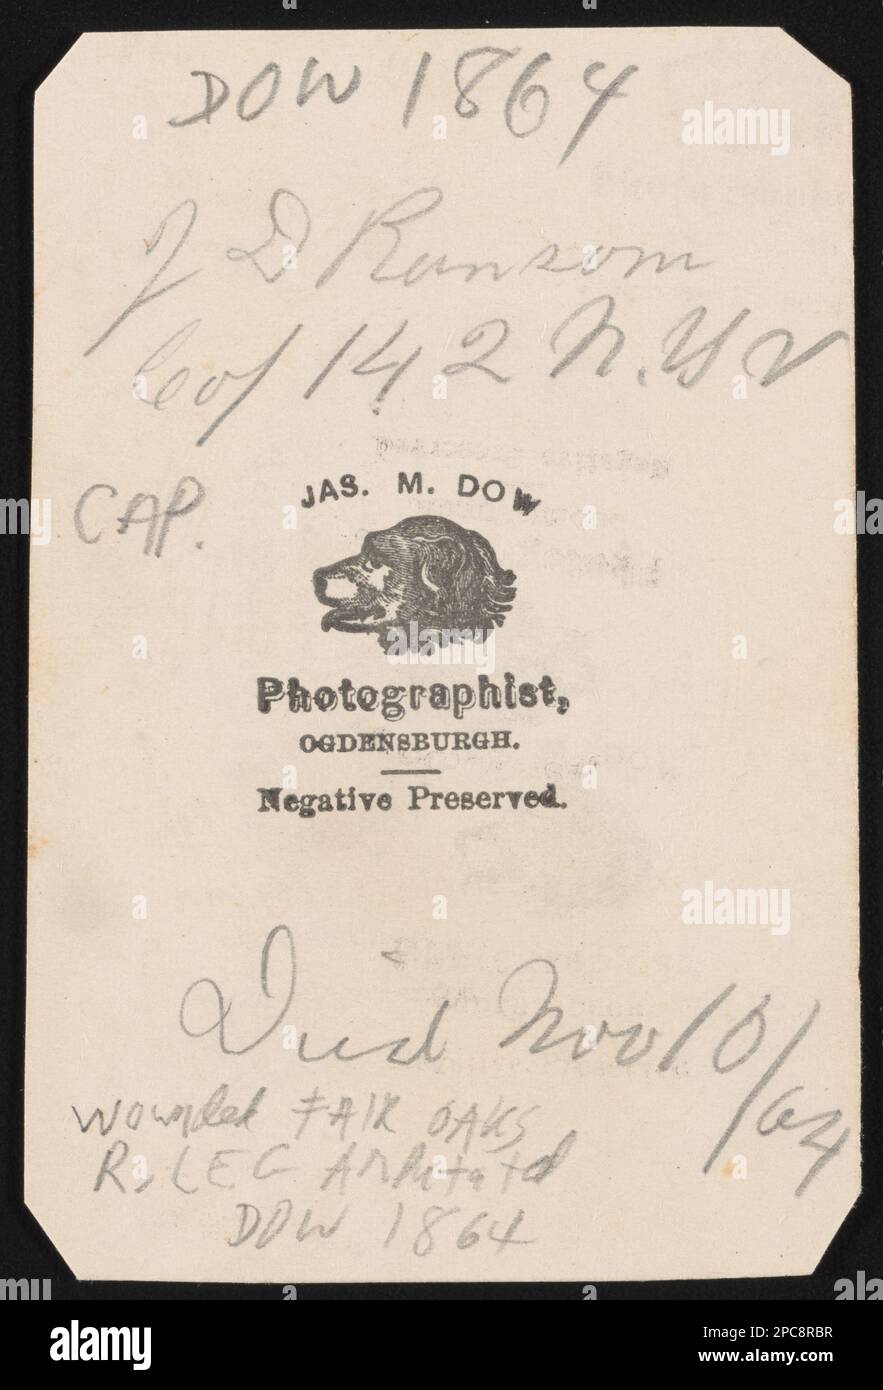 DOW 1864
J D Ransom
Co I 142 N.Y V
CAP.
JAS. M. DOW
Photographist,
OGDENSBURGH.
Negative Preserved.
Died Nov 10/64
wounded FAIR OAKS
R. LEG AMPutated
DOW 1864
alamy
Image ID: 2PC8RBR
www.alamy.com